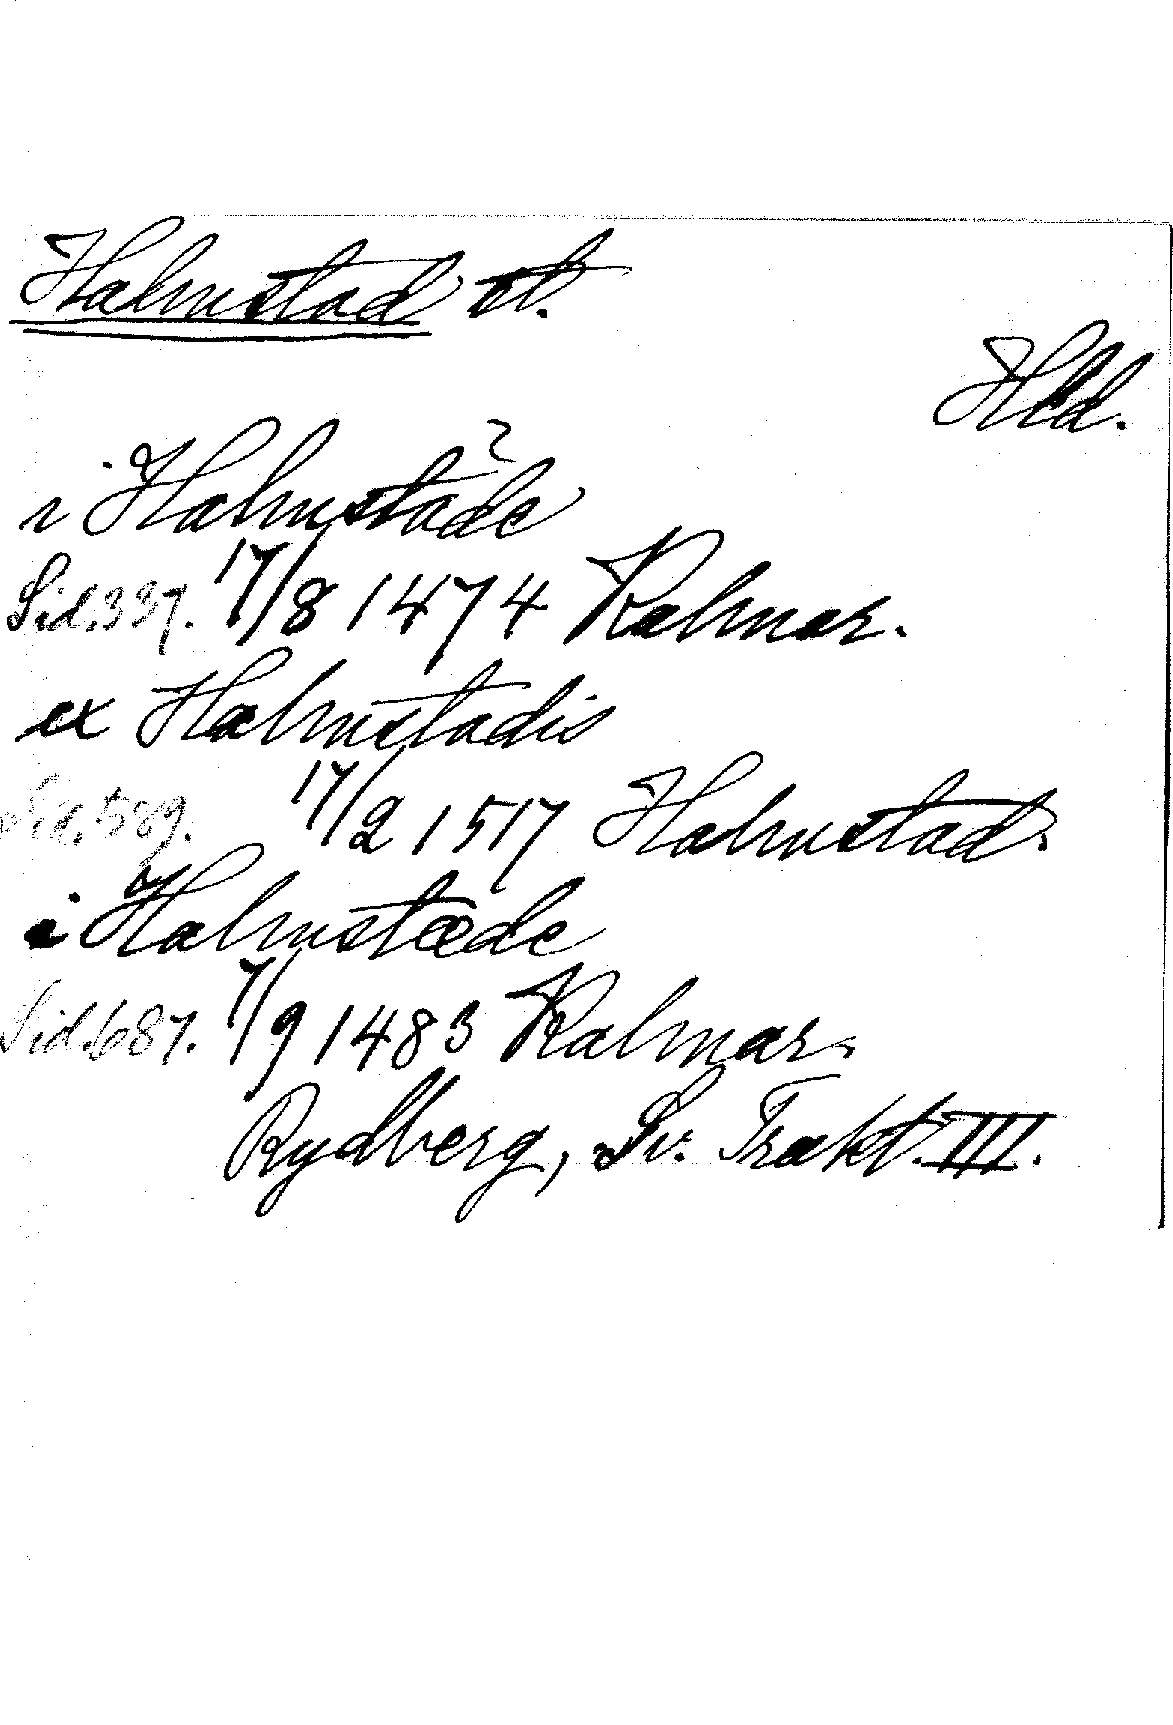 Halmstad st.
Hld.
i Halmstade
Sid. 337. 17/8 1474 Kalmar.
ex Halmstadis
Sid. 589. 17/2 1517 Halmstad.
i Halmstæde
Sid. 687. 7/9 1483 Kalmar.
Rydberg, Sv. Trakt. III.